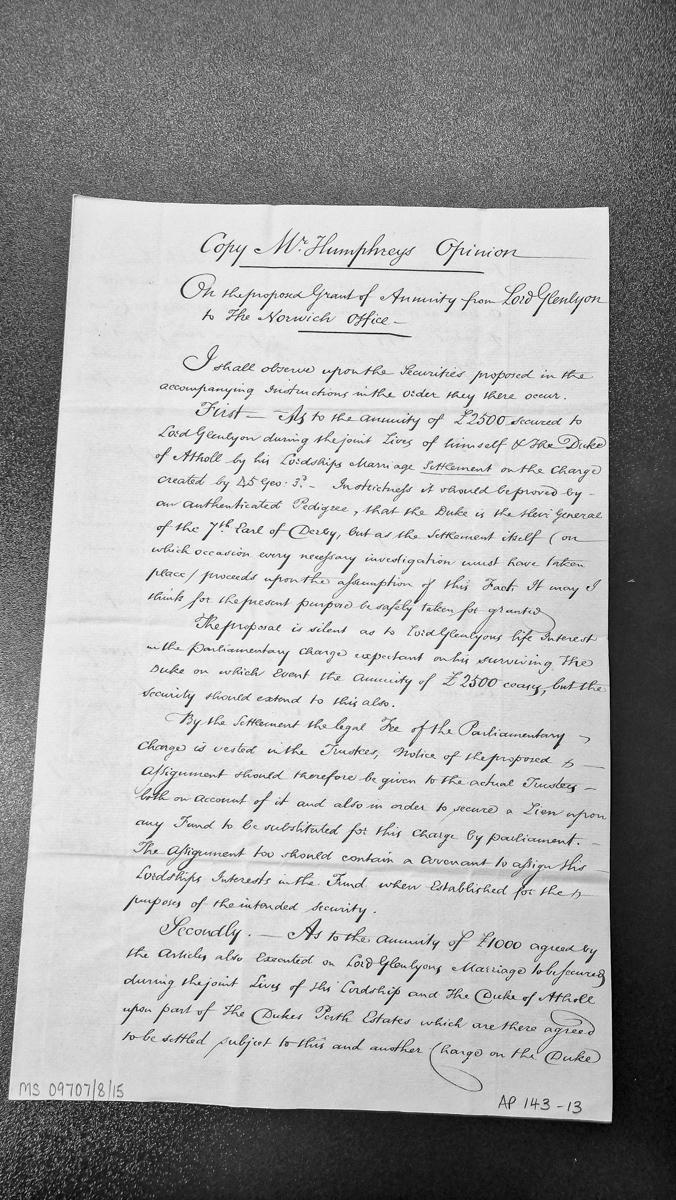 Copy Mr. Humphreys Opinion
On the proposed Grant of Annuity from Lord Glenlyon
to The Norwich Office –
I shall observe upon the Securities proposed in the
accompanying Instructions in the order they there occur.
First – As to the annuity of £2500 secured to
Lord Glenlyon during the joint Lives of himself & The Duke
of Atholl by his Lordships Marriage Settlement on the Charge
created by 45 Geo: 3d. – In strictness it should be proved by –
an authenticated Pedigree, that the Duke is the Heir General
of the 7th Earl of Derby, but as the Settlement itself (on
which occasion every necessary investigation must have taken
place/ proceeds upon the assumption of this Fact. It may I
think for the present purpose be safely taken for granted
The proposal is silent as to Lord Glenlyons life Interest
in the parliamentary charge expectant on his surviving The
Duke on which Event the annuity of £2500 ceases, but the
security should extend to this also.
By the Settlement the legal Fee of the Parliamentary
Charge is vested in the Trustees, Notice of the proposed
Assignment should therefore be given to the actual Trustees –
both on account of it and also in order to secure a Lien upon
any Fund to be substituted for this Charge by parliament. –
The Assignment too should contain a Covenant to assign this –
Lordships Interests in the Fund when Established for the
purposes of the intended security.
Secondly. – As to the annuity of £1000 agreed by
the Articles also Executed on Lord Glenlyons Marriage to be secured
during the joint Lives of His Lordship and The Duke of Atholl
upon part of The Dukes Perth Estates which are there agreed
to be settled subject to this and another Charge on the Duke
MS 09707/8/15
AP 143-13